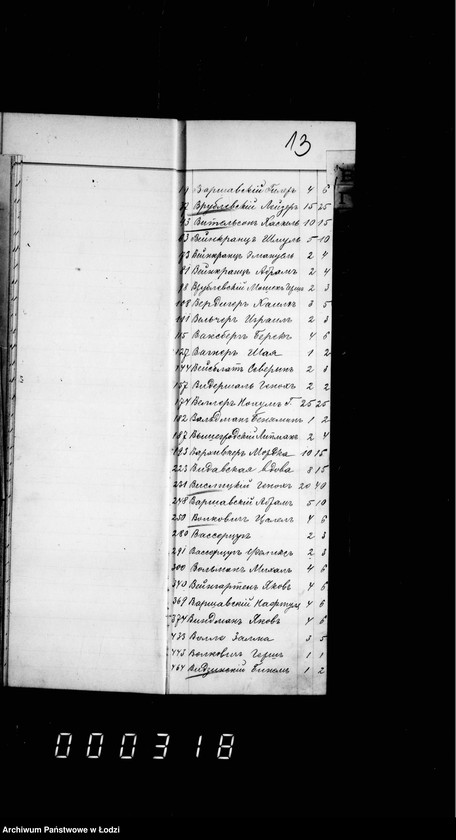 13
19 Варшавскій 4 6
Врублевскій Лейзеръ 15 25
Вительсонъ Хаскель 10 15
63 Вейнкранцъ Шмуль 5 10
73 Вейнкранцъ Эмануель 2 4
81 Вейнкранцъ Абрамъ 2 4
Врублевскій Мошекъ 2 3
108 Бердигеръ Хаимъ 3 5
111 Вельчеръ Израиль 2 3
115 Ваксбергъ Берекъ 4 6
127 Вагнеръ Шая 1 2
144 Вейсблатъ Северинъ 2 3
157 Видершаль Генохъ 2 2
174 Веллеръ Нохумъ Г. 25 25
182 Вальдманъ Бенаминъ 1 2
187 Вышегродскій Литманъ 2 4
193 Мордка 10 15
223 Видавская вдова 8 15
231 Вислицкій Генохъ 20 40
248 Варшавскій Абрамъ 5 10
250 Волковичъ Цалель 4 6
280 Вассерцугъ 2 3
291 Вассерцугъ 2 3
300 Вольманъ Михаль 4 6
340 Вейнгартенъ Яковъ 4 6
369 Варшавскій Нафтули 4 6
374 Виндманъ Яковъ 4 6
433 Волло Залма 3 5
445 Волковичъ Гершъ 1 1
464 Видзинскій Бинемъ 1 2
000318
Archiwum Państwowe w Łodzi